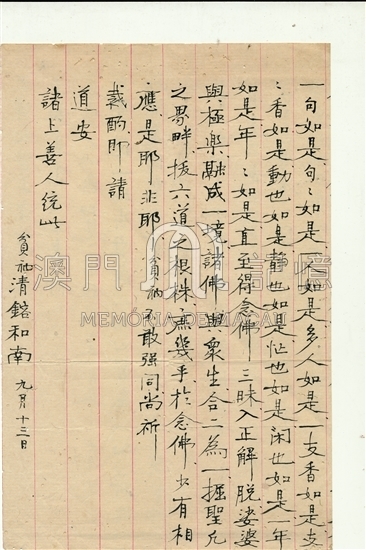 一句如是句〻如是一人如是多人如是一支香如是支
〻香如是動也如是靜也如是忙也如是闲也如是一年
如是年〻如是直至得念佛三昧入正解脱娑婆
與極樂融成一境諸佛與衆生合二為一掘聖凡
之界畔拔六道之根株庶幾乎於念佛少有相
應是耶非耶貧衲不敢强同尚祈
裁酌即請
道安
諸上善人統此
貧衲清鎔和南九月十三日
澳門記憶
MEMÓRIA DE MACAU